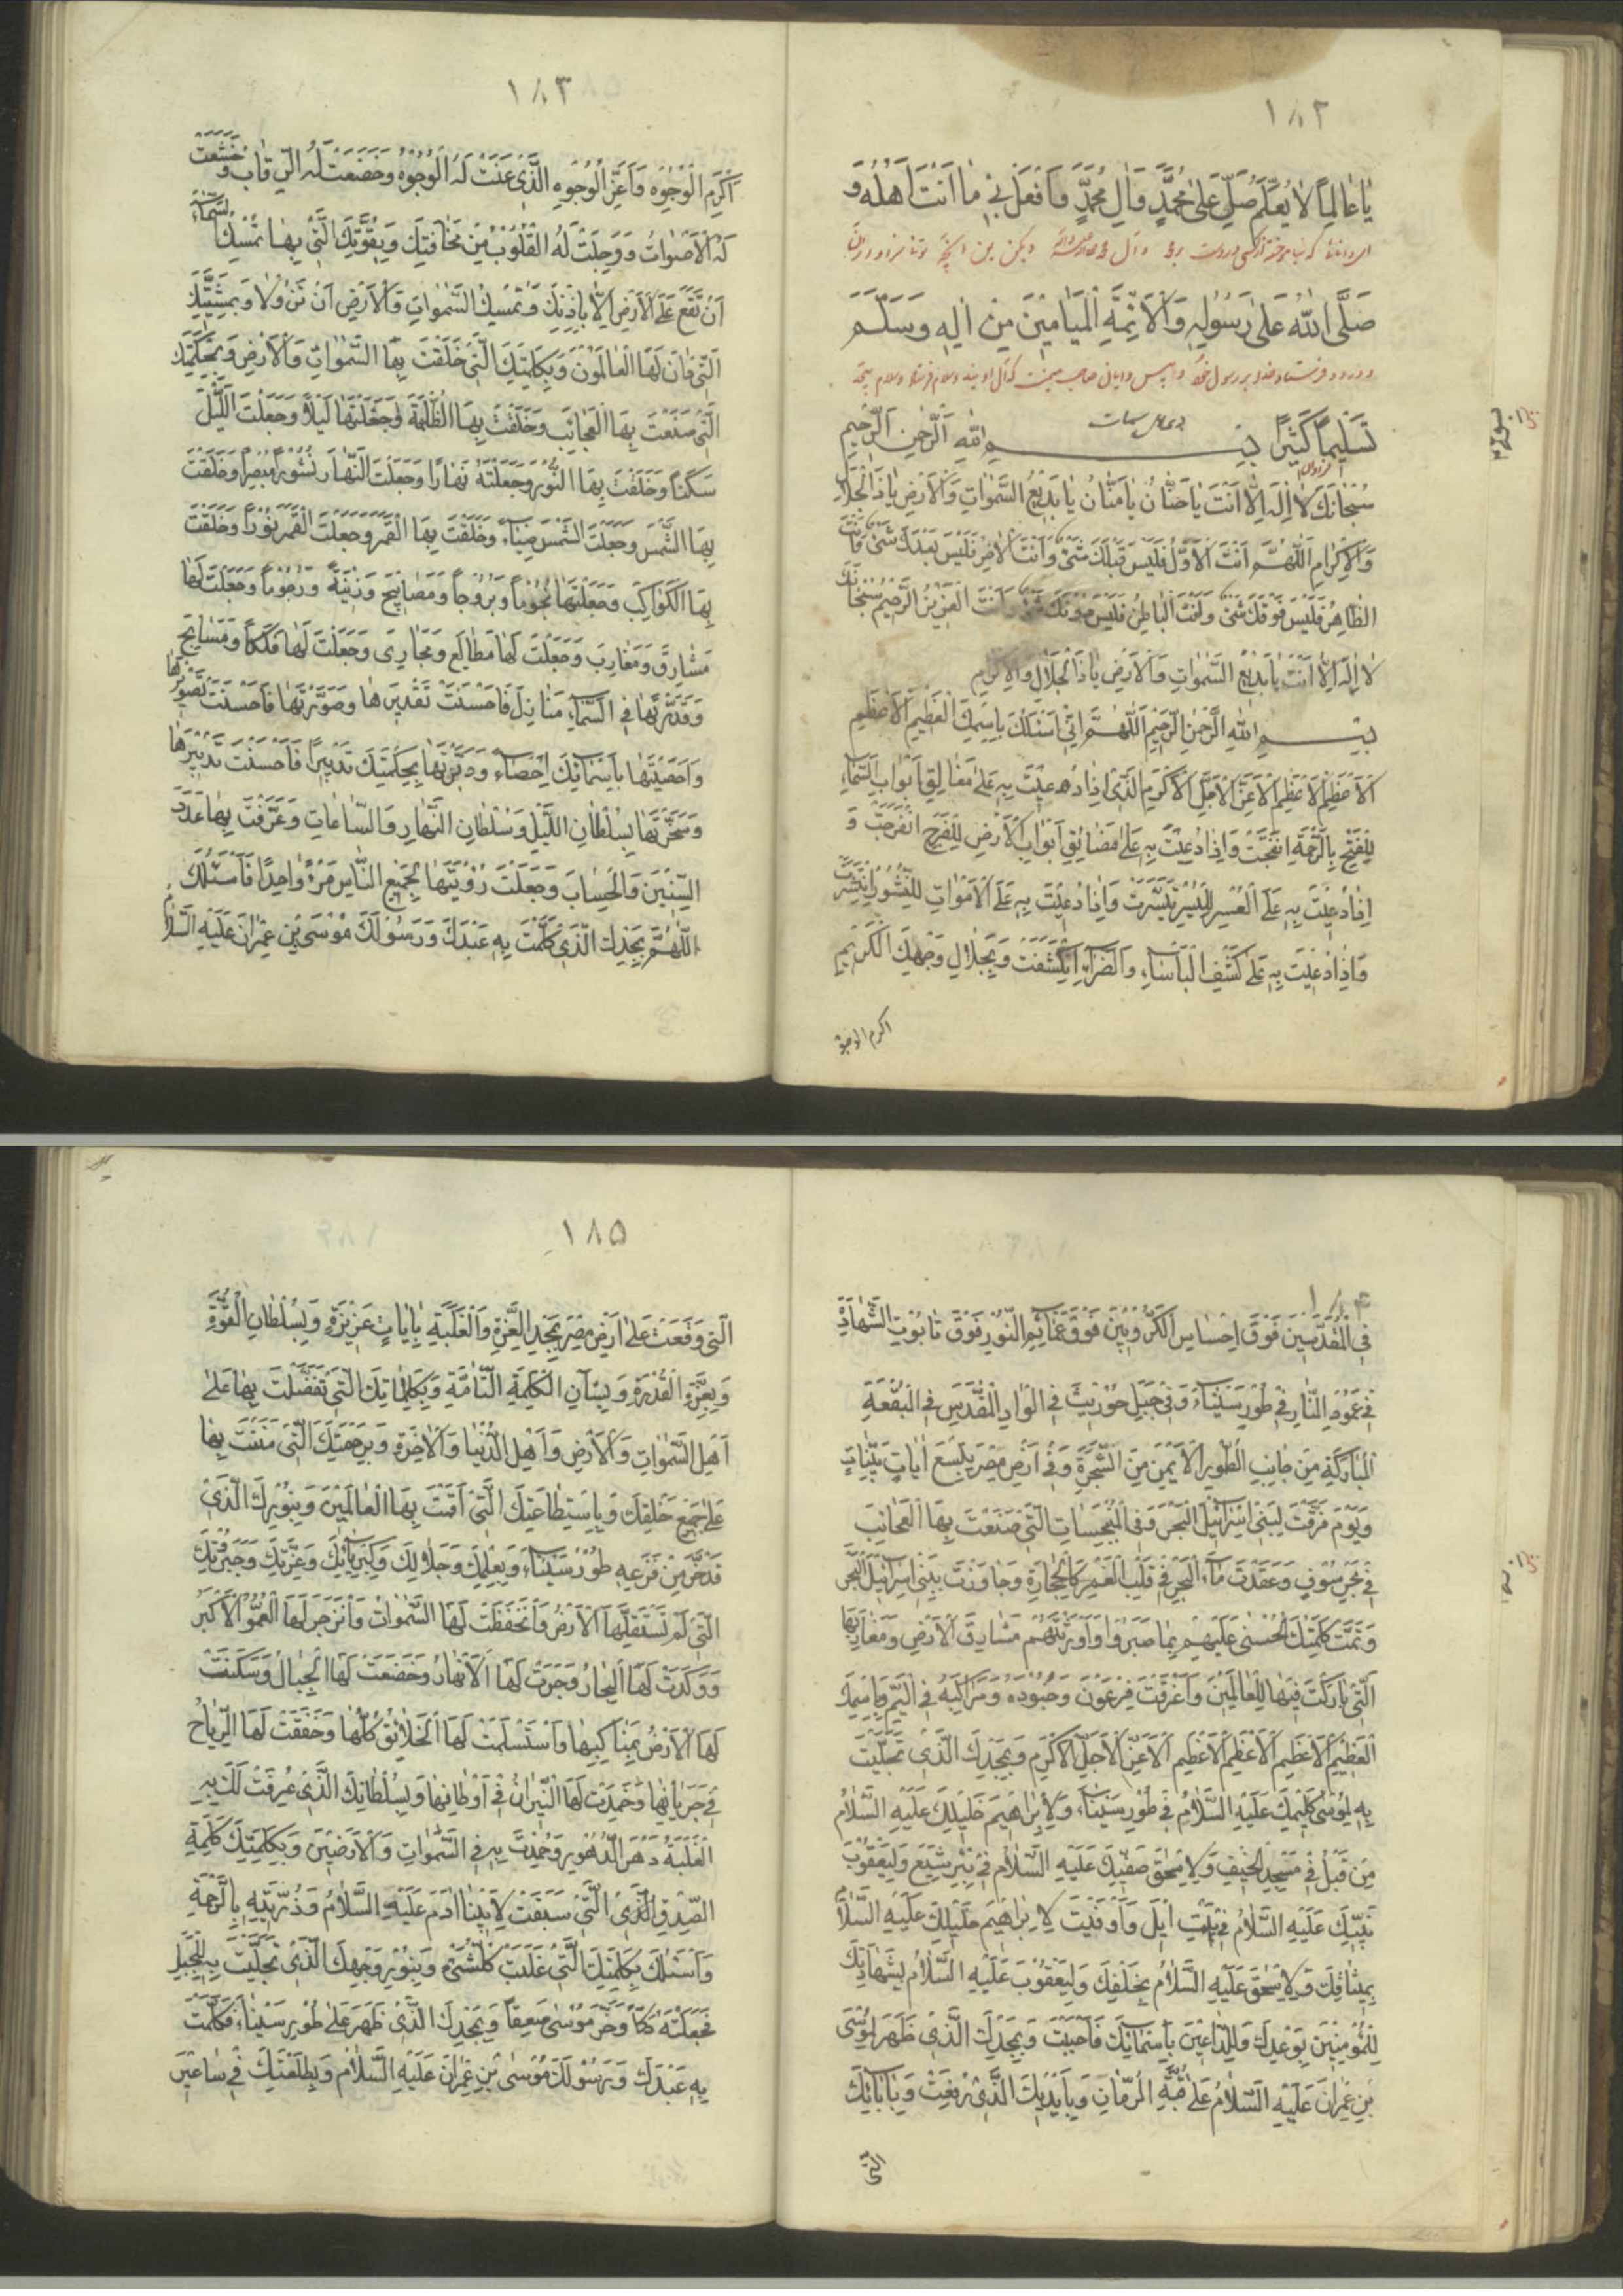 ١٨٢
يا عالِماً لا يُعَلَّمُ صَلِّ عَلىٰ مُحَمَّدٍ وَآلِ مُحَمَّدٍ وَافْعَلْ بي ما اَنْتَ اَهْلُهُ وَ
صَلَّى اللهُ عَلىٰ رَسُولِهِ وَالْاَئِمَّةِ الْمَيامينَ مِنْ آلِهِ وَسَلَّمَ
تَسْليماً كَثيراً بِسْمِ اللهِ الرَّحْمٰنِ الرَّحيمِ
دعای سمات
سُبْحانَكَ لا اِلٰهَ اِلّا اَنْتَ يا حَنّانُ يا مَنّانُ يا بَديعَ السَّمٰواتِ وَالْاَرْضِ يا ذَا الْجَلالِ
وَالْاِكْرامِ اَللّٰهُمَّ اَنْتَ الْاَوَّلُ فَلَيْسَ قَبْلَكَ شَيْءٌ وَاَنْتَ الْاٰخِرُ فَلَيْسَ بَعْدَكَ شَيْءٌ وَاَنْتَ
الظّاهِرُ فَلَيْسَ فَوْقَكَ شَيْءٌ وَاَنْتَ الْباطِنُ فَلَيْسَ دُونَكَ شَيْءٌ وَاَنْتَ الْعَزيزُ الرَّحيمُ سُبْحانَكَ
لا اِلٰهَ اِلّا اَنْتَ يا بَديعَ السَّمٰواتِ وَالْاَرْضِ يا ذَا الْجَلالِ وَالْاِكْرامِ
بِسْمِ اللهِ الرَّحْمٰنِ الرَّحيمِ اَللّٰهُمَّ اِنّي اَسْئَلُكَ بِاسْمِكَ الْعَظيمِ الْاَعْظَمِ
الْاَعْظَمِ الْاَعْظَمِ الْاَعَزِّ الْاَجَلِّ الْاَكْرَمِ الَّذي اِذا دُعيتَ بِهِ عَلىٰ مَغالِقِ اَبْوابِ السَّماءِ
لِلْفَتْحِ بِالرَّحْمَةِ انْفَتَحَتْ وَاِذا دُعيتَ بِهِ عَلىٰ مَضائِقِ اَبْوابِ الْاَرْضِ لِلْفَرَجِ انْفَرَجَتْ وَ
اِذا دُعيتَ بِهِ عَلَى الْعُسْرِ لِلْيُسْرِ تَيَسَّرَتْ وَاِذا دُعيتَ بِهِ عَلَى الْاَمْواتِ لِلنُّشُورِ انْتَشَرَتْ
وَاِذا دُعيتَ بِهِ عَلىٰ كَشْفِ الْبَأْساءِ وَالضَّرّاءِ انْكَشَفَتْ وَبِجَلالِ وَجْهِكَ الْكَريمِ
اكرم الوجوه
١٨٣
اَكْرَمِ الْوُجُوهِ وَاَعَزِّ الْوُجُوهِ الَّذي عَنَتْ لَهُ الْوُجُوهُ وَخَضَعَتْ لَهُ الرِّقابُ وَخَشَعَتْ
لَهُ الْاَصْواتُ وَوَجِلَتْ لَهُ الْقُلُوبُ مِنْ مَخافَتِكَ وَبِقُوَّتِكَ الَّتي بِها تُمْسِكُ السَّماءَ
اَنْ تَقَعَ عَلَى الْاَرْضِ اِلّا بِاِذْنِكَ وَتُمْسِكُ السَّمٰواتِ وَالْاَرْضَ اَنْ تَزُولا وَبِمَشِيَّتِكَ
الَّتي دانَ لَهَا الْعالَمُونَ وَبِكَلِمَتِكَ الَّتي خَلَقْتَ بِهَا السَّمٰواتِ وَالْاَرْضَ وَبِحِكْمَتِكَ
الَّتي صَنَعْتَ بِهَا الْعَجائِبَ وَخَلَقْتَ بِهَا الظُّلْمَةَ وَجَعَلْتَها لَيْلاً وَجَعَلْتَ اللَّيْلَ
سَكَناً وَخَلَقْتَ بِهَا النُّورَ وَجَعَلْتَهُ نَهاراً وَجَعَلْتَ النَّهارَ نُشُوراً مُبْصِراً وَخَلَقْتَ
بِهَا الشَّمْسَ وَجَعَلْتَ الشَّمْسَ ضِياءً وَخَلَقْتَ بِهَا الْقَمَرَ وَجَعَلْتَ الْقَمَرَ نُوراً وَخَلَقْتَ
بِهَا الْكَواكِبَ وَجَعَلْتَها نُجُوماً وَبُرُوجاً وَمَصابيحَ وَزينَةً وَرُجُوماً وَجَعَلْتَ لَها
مَشارِقَ وَمَغارِبَ وَجَعَلْتَ لَها مَطالِعَ وَمَجارِيَ وَجَعَلْتَ لَها فَلَكاً وَمَسابِحَ
وَقَدَّرْتَها فِي السَّماءِ مَنازِلَ فَاَحْسَنْتَ تَقْديرَها وَصَوَّرْتَها فَاَحْسَنْتَ تَصْويرَها
وَاَحْصَيْتَها بِاَسْمائِكَ اِحْصاءً وَدَبَّرْتَها بِحِكْمَتِكَ تَدْبيراً فَاَحْسَنْتَ تَدْبيرَها
وَسَخَّرْتَها بِسُلْطانِ اللَّيْلِ وَسُلْطانِ النَّهارِ وَالسّاعاتِ وَعَرَّفْتَ بِها عَدَدَ
السِّنينَ وَالْحِسابَ وَجَعَلْتَ رُؤْيَتَها لِجَميعِ النّاسِ مَرْءً واحِداً فَاَسْئَلُكَ
اللّٰهُمَّ بِمَجْدِكَ الَّذي كَلَّمْتَ بِهِ عَبْدَكَ وَرَسُولَكَ مُوسَى بْنَ عِمْرانَ عَلَيْهِ السَّلامُ
١٨٤
فِي الْمُقَدَّسينَ فَوْقَ اِحْساسِ الْكَرُّوبينَ فَوْقَ غَمائِمِ النُّورِ فَوْقَ تابُوتِ الشَّهادَةِ
في عَمُودِ النّارِ في طُورِ سَيْناءَ وَفي جَبَلِ حُوريثَ فِي الْوادِ الْمُقَدَّسِ فِي الْبُقْعَةِ
الْمُبارَكَةِ مِنْ جانِبِ الطُّورِ الْاَيْمَنِ مِنَ الشَّجَرَةِ وَفي اَرْضِ مِصْرَ بِتِسْعِ اٰياتٍ بَيِّناتٍ
وَيَوْمَ فَرَقْتَ لِبَني اِسْرائيلَ الْبَحْرَ وَفِي الْمُنْبَجِساتِ الَّتي صَنَعْتَ بِهَا الْعَجائِبَ
في بَحْرِ سُوفٍ وَعَقَدْتَ ماءَ الْبَحْرِ في قَلْبِ الْغَمْرِ كَالْحِجارَةِ وَجاوَزْتَ بِبَني اِسْرائيلَ الْبَحْرَ
وَتَمَّتْ كَلِمَتُكَ الْحُسْنىٰ عَلَيْهِمْ بِما صَبَرُوا وَاَوْرَثْتَهُمْ مَشارِقَ الْاَرْضِ وَمَغارِبَها
الَّتي بارَكْتَ فيها لِلْعالَمينَ وَاَغْرَقْتَ فِرْعَوْنَ وَجُنُودَهُ وَمَراكِبَهُ فِي الْيَمِّ وَبِاسْمِكَ
الْعَظيمِ الْاَعْظَمِ الْاَعْظَمِ الْاَعْظَمِ الْاَعَزِّ الْاَجَلِّ الْاَكْرَمِ وَبِمَجْدِكَ الَّذي تَجَلَّيْتَ
بِهِ لِمُوسىٰ كَليمِكَ عَلَيْهِ السَّلامُ في طُورِ سَيْناءَ وَلِاِبْراهيمَ خَليلِكَ عَلَيْهِ السَّلامُ
مِنْ قَبْلُ في مَسْجِدِ الْخَيْفِ وَلِاِسْحٰقَ صَفِيِّكَ عَلَيْهِ السَّلامُ في بِئْرِ شِيَعٍ وَلِيَعْقُوبَ
نَبِيِّكَ عَلَيْهِ السَّلامُ في بَيْتِ ايلَ وَاَوْفَيْتَ لِاِبْراهيمَ خَليلِكَ عَلَيْهِ السَّلامُ
بِميثاقِكَ وَلِاِسْحٰقَ عَلَيْهِ السَّلامُ بِحَلْفِكَ وَلِيَعْقُوبَ عَلَيْهِ السَّلامُ بِشَهادَتِكَ
لِلْمُؤْمِنينَ بِوَعْدِكَ وَلِلدّاعينَ بِاَسْمائِكَ فَاَجَبْتَ وَبِمَجْدِكَ الَّذي ظَهَرَ لِمُوسَى
بْنِ عِمْرانَ عَلَيْهِ السَّلامُ عَلىٰ قُبَّةِ الرُّمّانِ وَبِاَيْدِكَ الَّذي رُفِعَتْ وَبِاٰياتِكَ
التي
١٨٥
الَّتي وَقَعَتْ عَلىٰ اَرْضِ مِصْرَ بِمَجْدِ الْعِزَّةِ وَالْغَلَبَةِ بِاٰياتٍ عَزيزَةٍ وَبِسُلْطانِ الْقُوَّةِ
وَبِعِزَّةِ الْقُدْرَةِ وَبِشَأْنِ الْكَلِمَةِ التّامَّةِ وَبِكَلِماتِكَ الَّتي تَفَضَّلْتَ بِها عَلىٰ
اَهْلِ السَّمٰواتِ وَالْاَرْضِ وَاَهْلِ الدُّنْيا وَالْاٰخِرَةِ وَبِرَحْمَتِكَ الَّتي مَنَنْتَ بِها
عَلىٰ جَميعِ خَلْقِكَ وَبِاسْتِطاعَتِكَ الَّتي اَقَمْتَ بِهَا الْعالَمينَ وَبِنُورِكَ الَّذي
قَدْ خَرَّ مِنْ فَزَعِهِ طُورُ سَيْناءَ وَبِعِلْمِكَ وَجَلالِكَ وَكِبْرِيائِكَ وَعِزَّتِكَ وَجَبَرُوتِكَ
الَّتي لَمْ تَسْتَقِلَّهَا الْاَرْضُ وَانْخَفَضَتْ لَهَا السَّمٰواتُ وَانْزَجَرَ لَهَا الْعُمْقُ الْاَكْبَرُ
وَرَكَدَتْ لَهَا الْبِحارُ وَجَرَتْ لَهَا الْاَنْهارُ وَخَضَعَتْ لَهَا الْجِبالُ وَسَكَنَتْ
لَهَا الْاَرْضُ بِمَناكِبِها وَاسْتَسْلَمَتْ لَهَا الْخَلائِقُ كُلُّها وَخَفَقَتْ لَهَا الرِّياحُ
في جَرَيانِها وَخَمَدَتْ لَهَا النّيرانُ في اَوْطانِها وَبِسُلْطانِكَ الَّذي عُرِفَتْ لَكَ بِهِ
الْغَلَبَةُ دَهْرَ الدُّهُورِ وَحُمِدْتَ بِهِ فِي السَّمٰواتِ وَالْاَرَضينَ وَبِكَلِمَتِكَ كَلِمَةِ
الصِّدْقِ الَّتي سَبَقَتْ لِاَبينا اٰدَمَ عَلَيْهِ السَّلامُ وَذُرِّيَّتِهِ بِالرَّحْمَةِ
وَاَسْئَلُكَ بِكَلِمَتِكَ الَّتي غَلَبَتْ كُلَّ شَيْءٍ وَبِنُورِ وَجْهِكَ الَّذي تَجَلَّيْتَ بِهِ لِلْجَبَلِ
فَجَعَلْتَهُ دَكّاً وَخَرَّ مُوسىٰ صَعِقاً وَبِمَجْدِكَ الَّذي ظَهَرَ عَلىٰ طُورِ سَيْناءَ فَكَلَّمْتَ
بِهِ عَبْدَكَ وَرَسُولَكَ مُوسَى بْنَ عِمْرانَ عَلَيْهِ السَّلامُ وَبِطَلْعَتِكَ في ساعيرَ